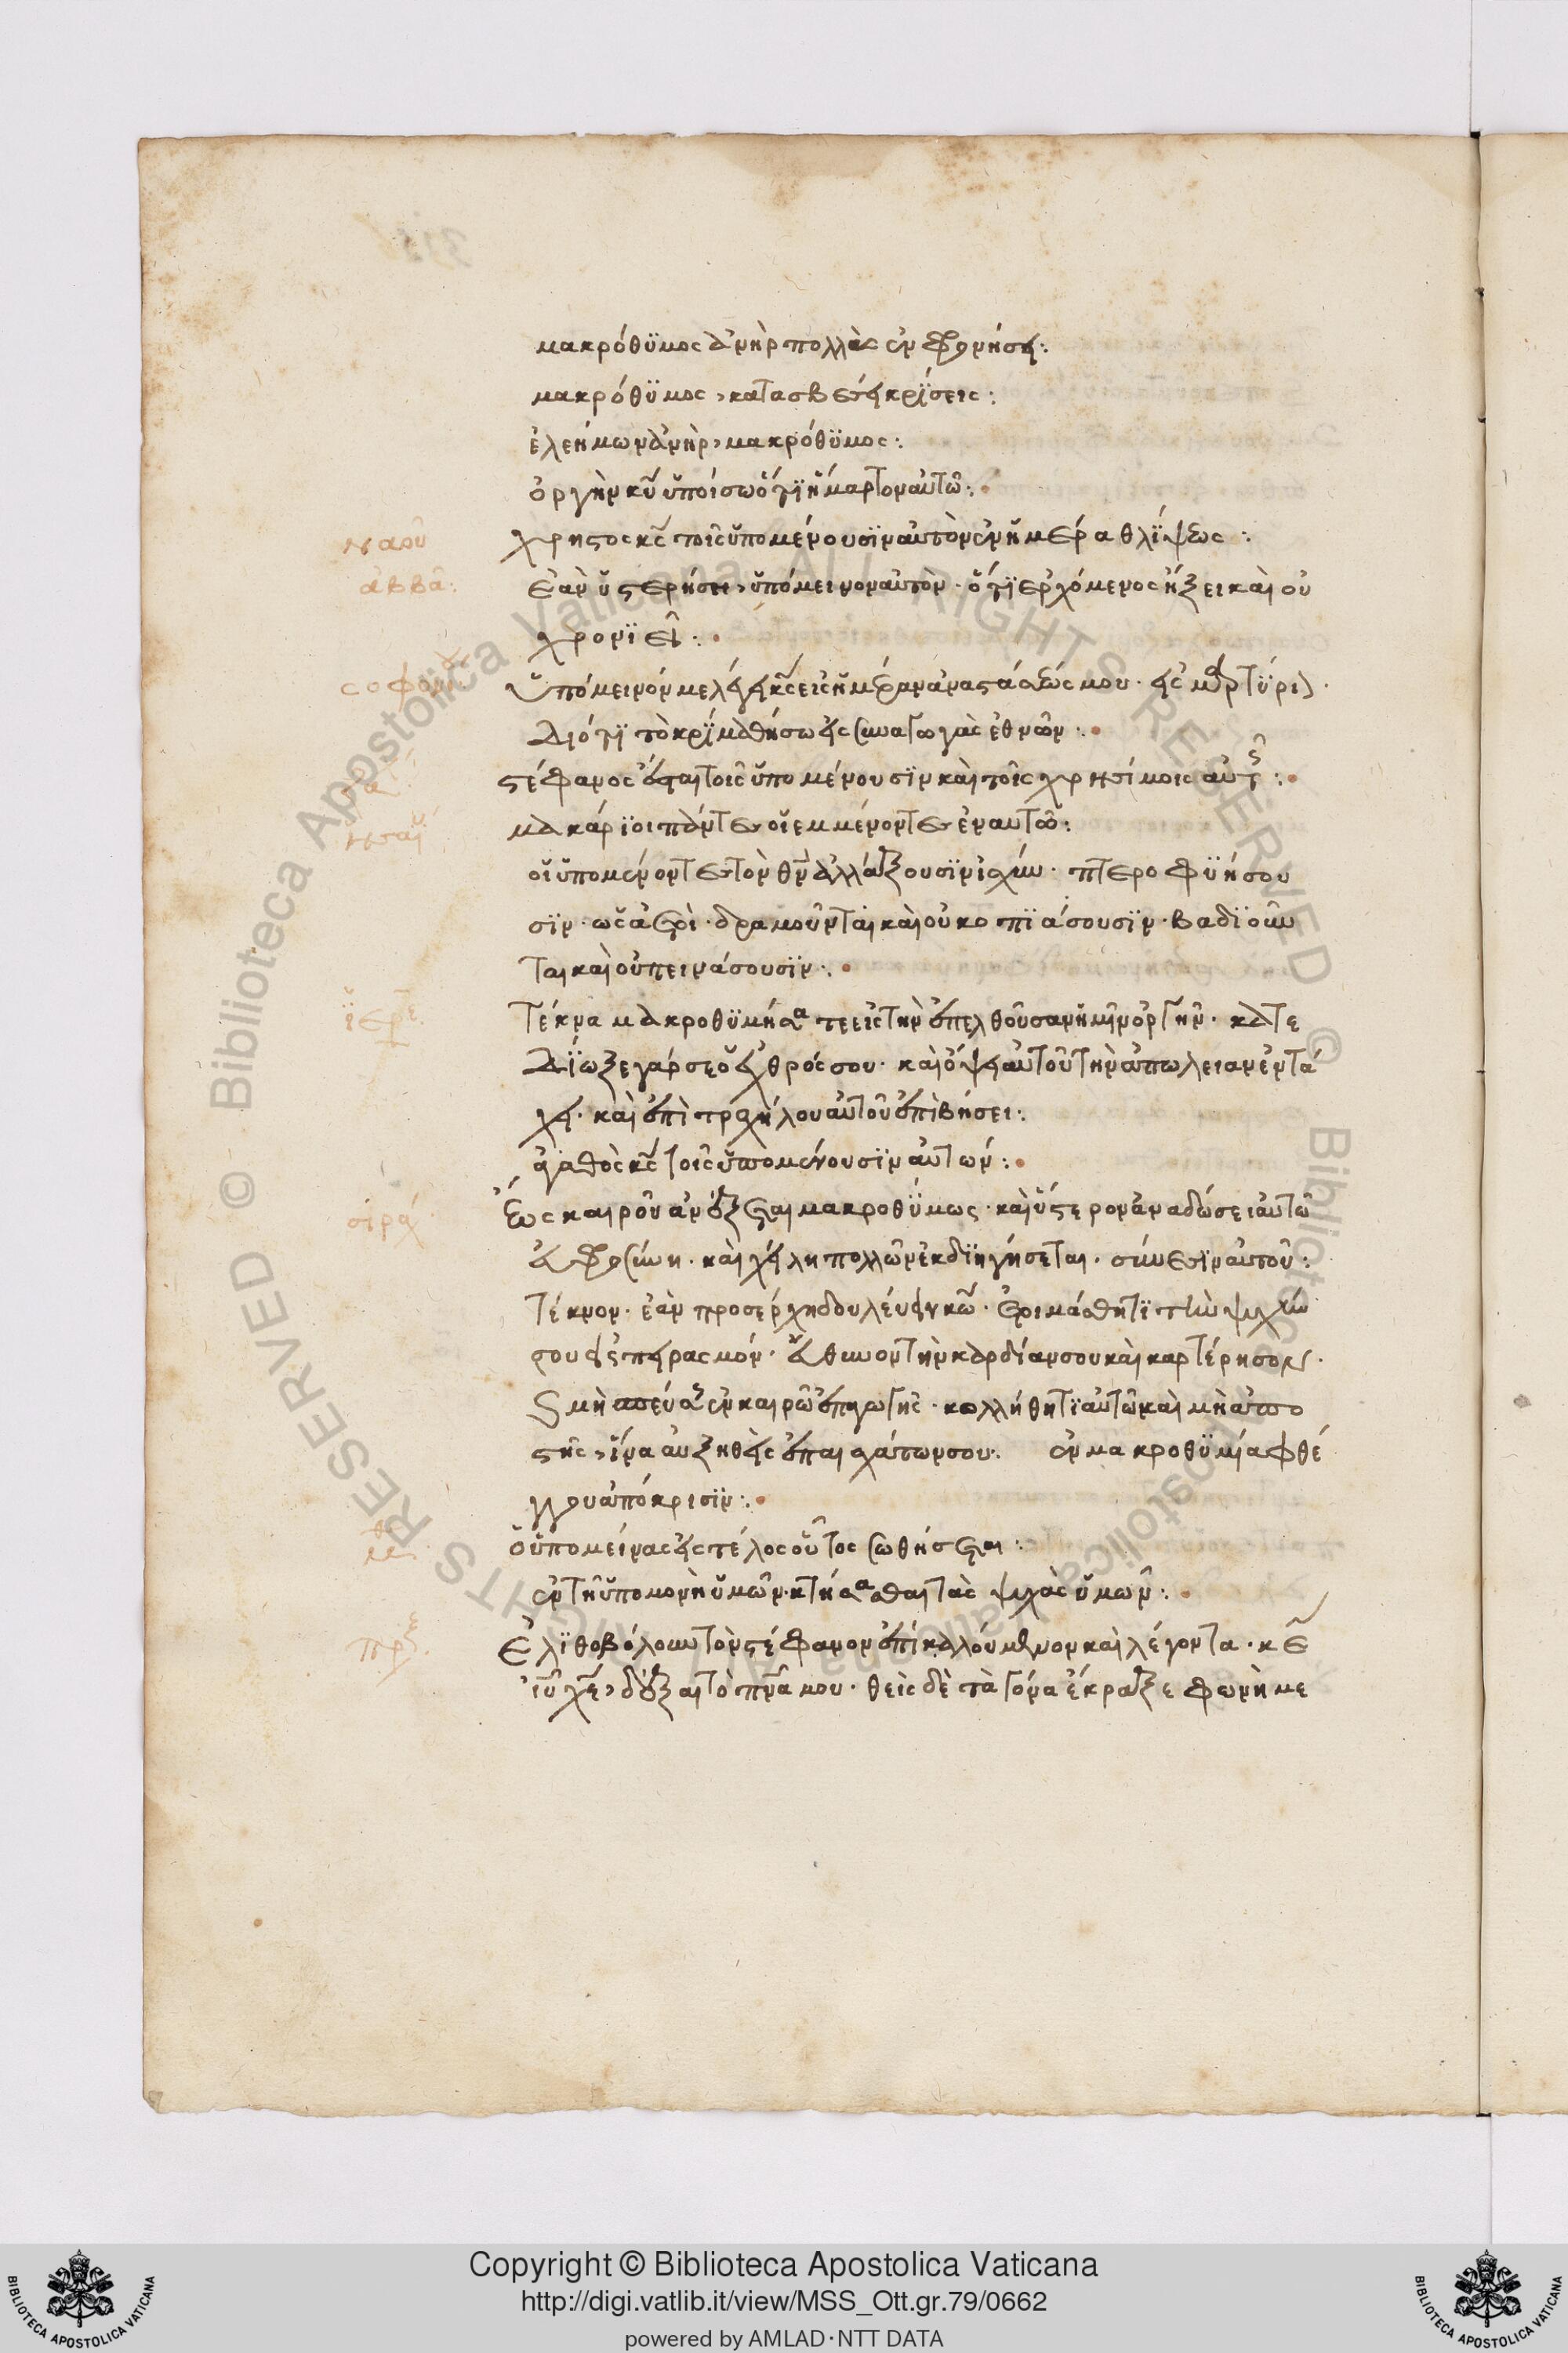 μακρόθϋμος ἀνὴρ πολλὰς ἐν φρονήσει:
μακρόθϋμος, κατασβεννύει κρίσεις:
ἐλεήμων ἀνὴρ, μακρόθϋμος:
ὀργὴν κυ̅ ὑποίσω ὅτι ἥμαρτον αὐτῶ:
ναου χρηστὸς κς̅ τοῖς ὑπομένουσϊν αὐτὸν ἐν ἡμέρα θλίψεως:
ἀββα: Ἐὰν ὑστερήση, ὑπόμεινον αὐτὸν· ὅτι ἐρχόμενος ἥξει καὶ οὐ
χρονϊεῖ:
σοφον Ὑπόμεινόν με λέγει κς̅ εἰς ἡμέραν ἀναστάσεώς μου· εἰς μαρτύριον·
Διότι τὸ κρίμα θήσω εἰς συναγωγὰς ἐθνῶν:
ζα στέφανος ἔσται τοῖς ὑπομένουσϊν καὶ τοῖς χρησίμοις αὐτῆς:
ησαϊ μακάρϊοι πάντες οἱ ἐμμένοντες ἐν αυτῶ:
οἱ ὑπομένοντες τὸν θν̅ ἀλλάξουσϊν ἰσχύν· πτεροφϋήσου
σϊν· ὡς ἀετοὶ· δραμοῦνται καὶ οὐ κοπϊάσουσϊν· βαδϊοῦν
ται καὶ οὐ πεινάσουσϊν:
ϊερε Τέκνα μακροθϋμήσατε εἰς τὴν ἐπελθοῦσαν ἡμῖν ὀργὴν· κατε
Δίωξε γάρ σε ὁ ἐχθρός σου· καὶ ὄψει αὐτοῦ τὴν ἀπωλειαν ἐν τά
χει· καὶ ἐπὶ τραχήλου αὐτοῦ ἐπιβήσει:
ἀγαθὸς κς̅ τοῖς ὑπομένουσϊν αὐτών:
σιραχ Ἕως καιροῦ ἀνέξεται μακροθύμως· καὶ ὕστερον ἀναδώσει αὐτῶ
εὐφροσύνη· καὶ χείλη πολλῶν ἐκδϊηγήσεται· σύνεσϊν αὐτοῦ:
Τέκνον· ἐὰν προσέρχη δουλεύειν κω̅· ἑτοιμάσθητϊ τὴν ψυχήν
σου εἰς πειρασμόν· εὔθυνον τὴν καρδίαν σου καὶ καρτέρησον·
ϛ μὴ σπεύσης ἐν καιρῶ ἐπαγωγῆς· κολλήθητϊ αὐτῶ καὶ μὴ ἀπο
στῆς, ἵνα αὐξηθῆς ἐπ' ἐσχάτων σου· ἐν μακροθϋμία φθέ
γγου ἀπόκρισϊν:
ὁ ὑπομείνας εἰς τέλος οὗτος σωθήσεται:
ἐν τῆ ὑπομονῆ ὑμῶν· κτήσασθαι τὰς ψυχὰς ὑμων:
πρξ Ἐλϊθοβόλουν τὸν στέφανον ἐπικαλούμενον καὶ λέγοντα· κε̅
ιυ̅ χε̅, δέξαι τὸ πνα̅ μου· θεὶς δὲ τὰ γόνα ἔκραξε φωνὴ με